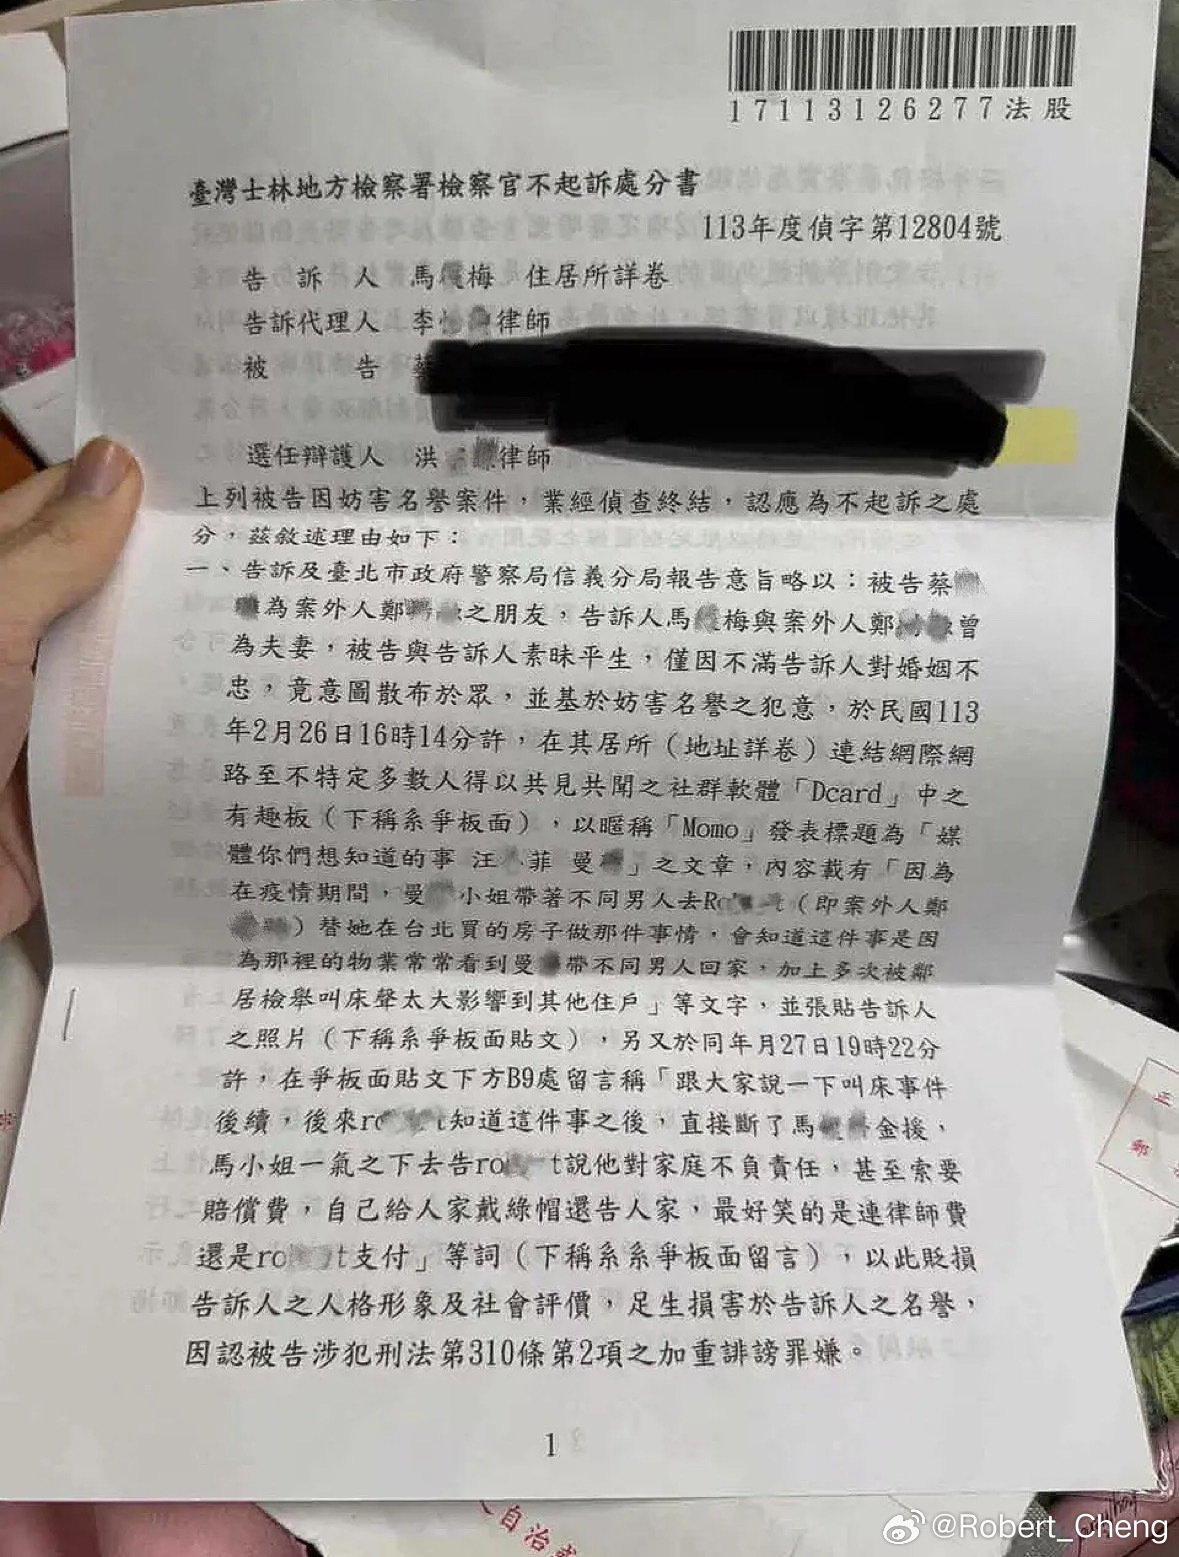 17113126277法股
臺灣士林地方檢察署檢察官不起訴處分書
113年度偵字第12804號
告訴人 馬 梅 住居所詳卷
告訴代理人 李 律師
被告 蔡
選任辯護人 洪 律師
上列被告因妨害名譽案件，業經偵查終結，認應為不起訴之處
分，茲敘述理由如下：
一、告訴及臺北市政府警察局信義分局報告意旨略以：被告蔡
為案外人鄭 之朋友，告訴人馬 梅與案外人鄭 曾
為夫妻，被告與告訴人素昧平生，僅因不滿告訴人對婚姻不
忠，竟意圖散布於眾，並基於妨害名譽之犯意，於民國113
年2月26日16時14分許，在其居所（地址詳卷）連結網際網
路至不特定多數人得以共見共聞之社群軟體「Dcard」中之
有趣板（下稱系爭板面），以暱稱「Momo」發表標題為「媒
體你們想知道的事 汪 菲 曼 」之文章，內容載有「因為
在疫情期間，曼 小姐帶著不同男人去Ro t（即案外人鄭
）替她在台北買的房子做那件事情，會知道這件事是因
為那裡的物業常常看到曼 帶不同男人回家，加上多次被鄰
居檢舉叫床聲太大影響到其他住戶」等文字，並張貼告訴人
之照片（下稱系爭板面貼文），另又於同年月27日19時22分
許，在爭板面貼文下方B9處留言稱「跟大家說一下叫床事件
後續，後來ro t知道這件事之後，直接斷了馬 金援，
馬小姐一氣之下去告ro t說他對家庭不負責任，甚至索要
賠償費，自己給人家戴綠帽還告人家，最好笑的是連律師費
還是ro t支付」等詞（下稱系系爭板面留言），以此貶損
告訴人之人格形象及社會評價，足生損害於告訴人之名譽，
因認被告涉犯刑法第310條第2項之加重誹謗罪嫌。
1
人自治
@Robert_Cheng